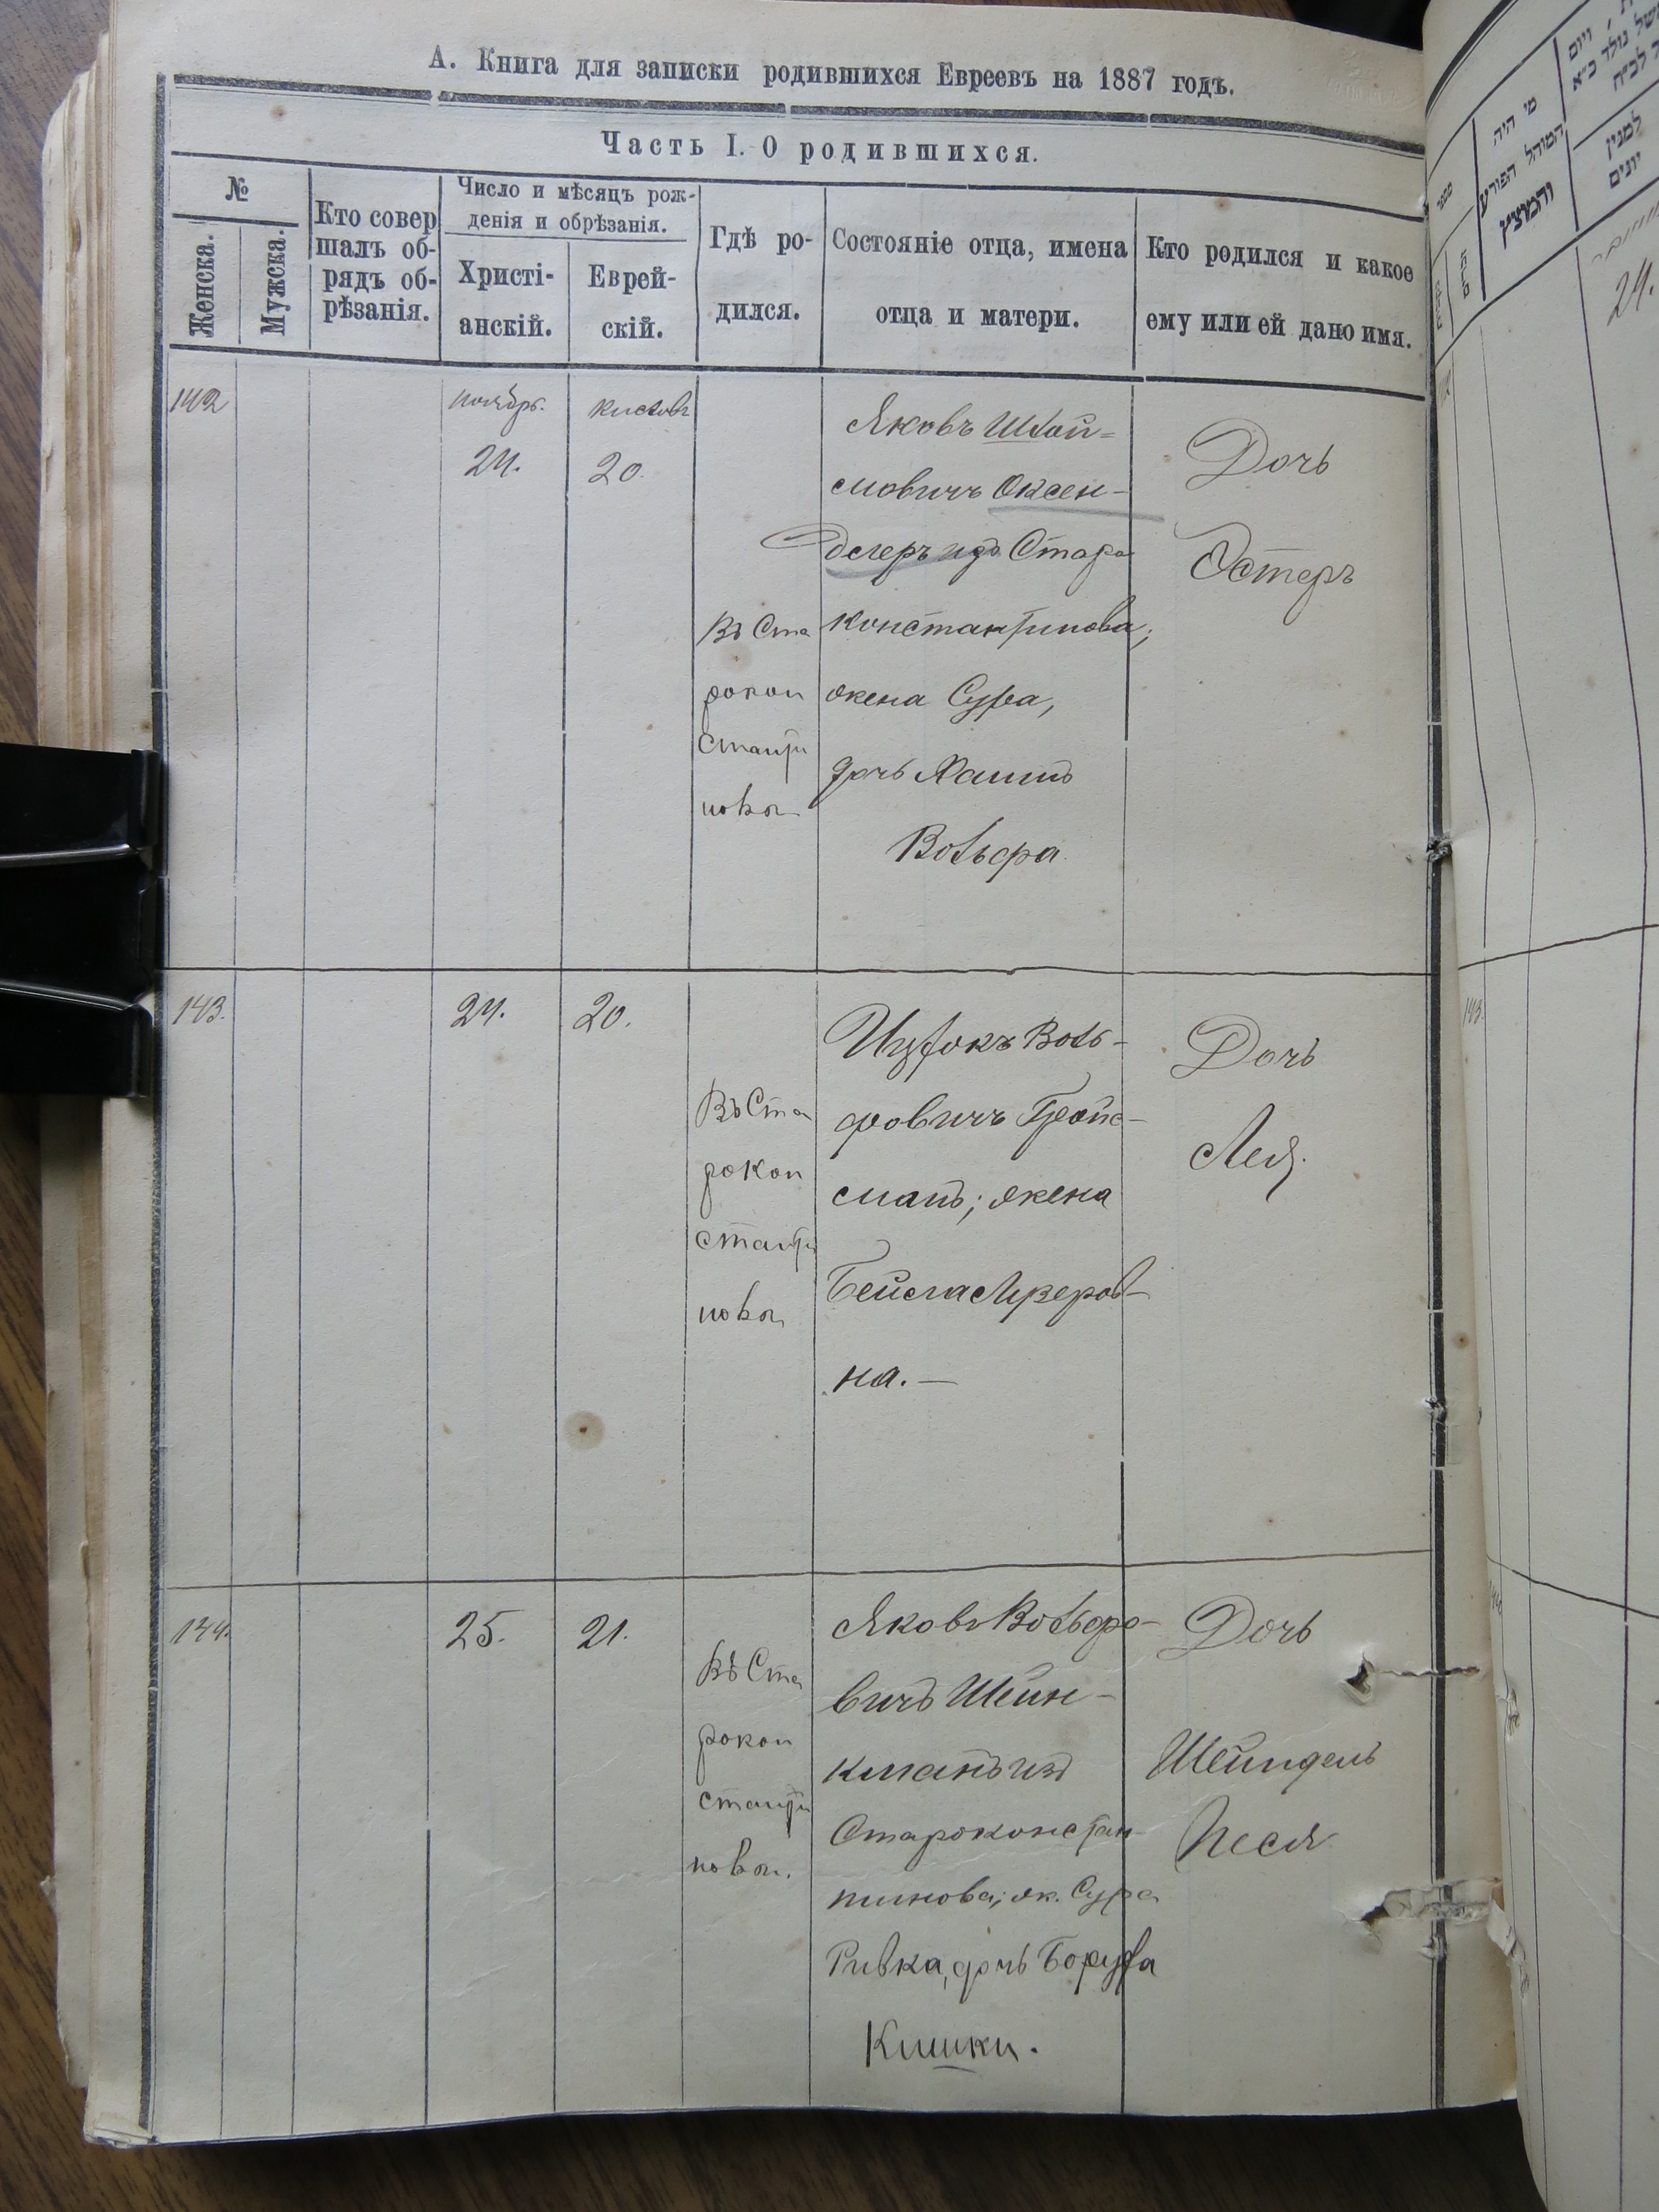 А. Книга для записки родившихся Евреевъ на 1887 годъ.
Часть I. О родившихся.
№
Женска.
Мужска.
Кто совер
шалъ об-
рядъ об-
рѣзанія.
Число и мѣсяцъ рож-
денія и обрѣзанія.
Христі-
анскій.
Еврей-
скій.
Гдѣ ро-
дился.
Состояніе отца, имена
отца и матери.
Кто родился и какое
ему или ей дано имя.
142
ноябрь.
24.
кислевъ
20.
Въ Ста
рокон
станти
новѣ
Яковъ Шлой-
мовичъ Оксен-
делеръ изъ Старо
константинова;
жена Сура,
дочь Хаимъ
Вольфа.
Дочь
Эстеръ
143.
24.
20.
Въ Ста
рокон
станти
новѣ
Ицхокъ Воль-
фовичъ Гройс-
манъ; жена
Бейла Лейзеров-
на.—
Дочь
Лея.
144.
25.
21.
Въ Ста
рокон
станти
новѣ.
Яковъ Вольфо-
вичъ Шейн-
кманъ изъ
Староконстан-
тинова; ж. Сура
Ривка, дочь Боруха
Кишки.
Дочь
Шейндель
Песя
מי היה
המוהל הפורע
והמוצץ
למנין
יונים
24.
143.